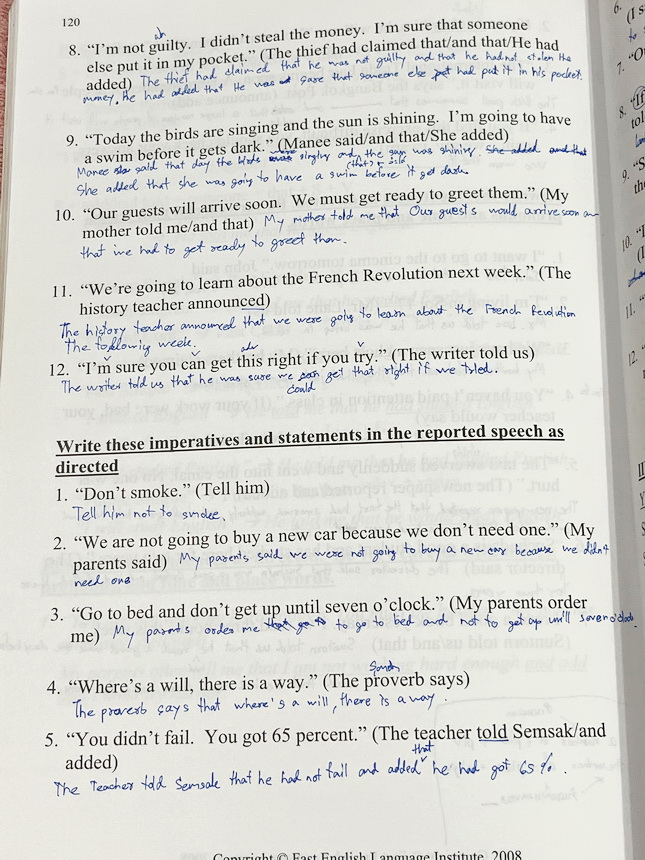 120
8. “I'm not guilty. I didn't steal the money. I'm sure that someone
else put it in my pocket.” (The thief had claimed that/and that/He had
added) The thief had claimed that he was not guilty and that he had not stolen the
money. He had added that He was sure that someone else had put it in his pocket.
9. “Today the birds are singing and the sun is shining. I'm going to have
a swim before it gets dark.” (Manee said/and that/She added)
Manee said that day the birds were singing and the sun was shining She added and that
She added that she was going to have a swim before it get dark.
10. “Our guests will arrive soon. We must get ready to greet them.” (My
mother told me/and that) My mother told me that Our guests would arrive soon an
that we had to get ready to greet them.
11. “We're going to learn about the French Revolution next week.” (The
history teacher announced)
The history teacher announced that we were going to learn about the French Revolution
The following week.
12. “I'm sure you can get this right if you try.” (The writer told us)
The writer told us that he was sure we can get that right if we tried.
could
Write these imperatives and statements in the reported speech as
directed
1. “Don't smoke.” (Tell him)
Tell him not to smoke.
2. “We are not going to buy a new car because we don't need one.” (My
parents said) My parents said we were not going to buy a new car because we didn't
need one
3. “Go to bed and don't get up until seven o'clock.” (My parents order
me) My parents order me to go to bed and not to get up until seven o'clock.
4. “Where's a will, there is a way.” (The proverb says)
The proverb says that where's a will, there is a way.
5. “You didn't fail. You got 65 percent.” (The teacher told Semsak/and
added)
that
The Teacher told Semsak that he had not fail and added he had got 65 %.
Copyright © East English Language Institute, 2008